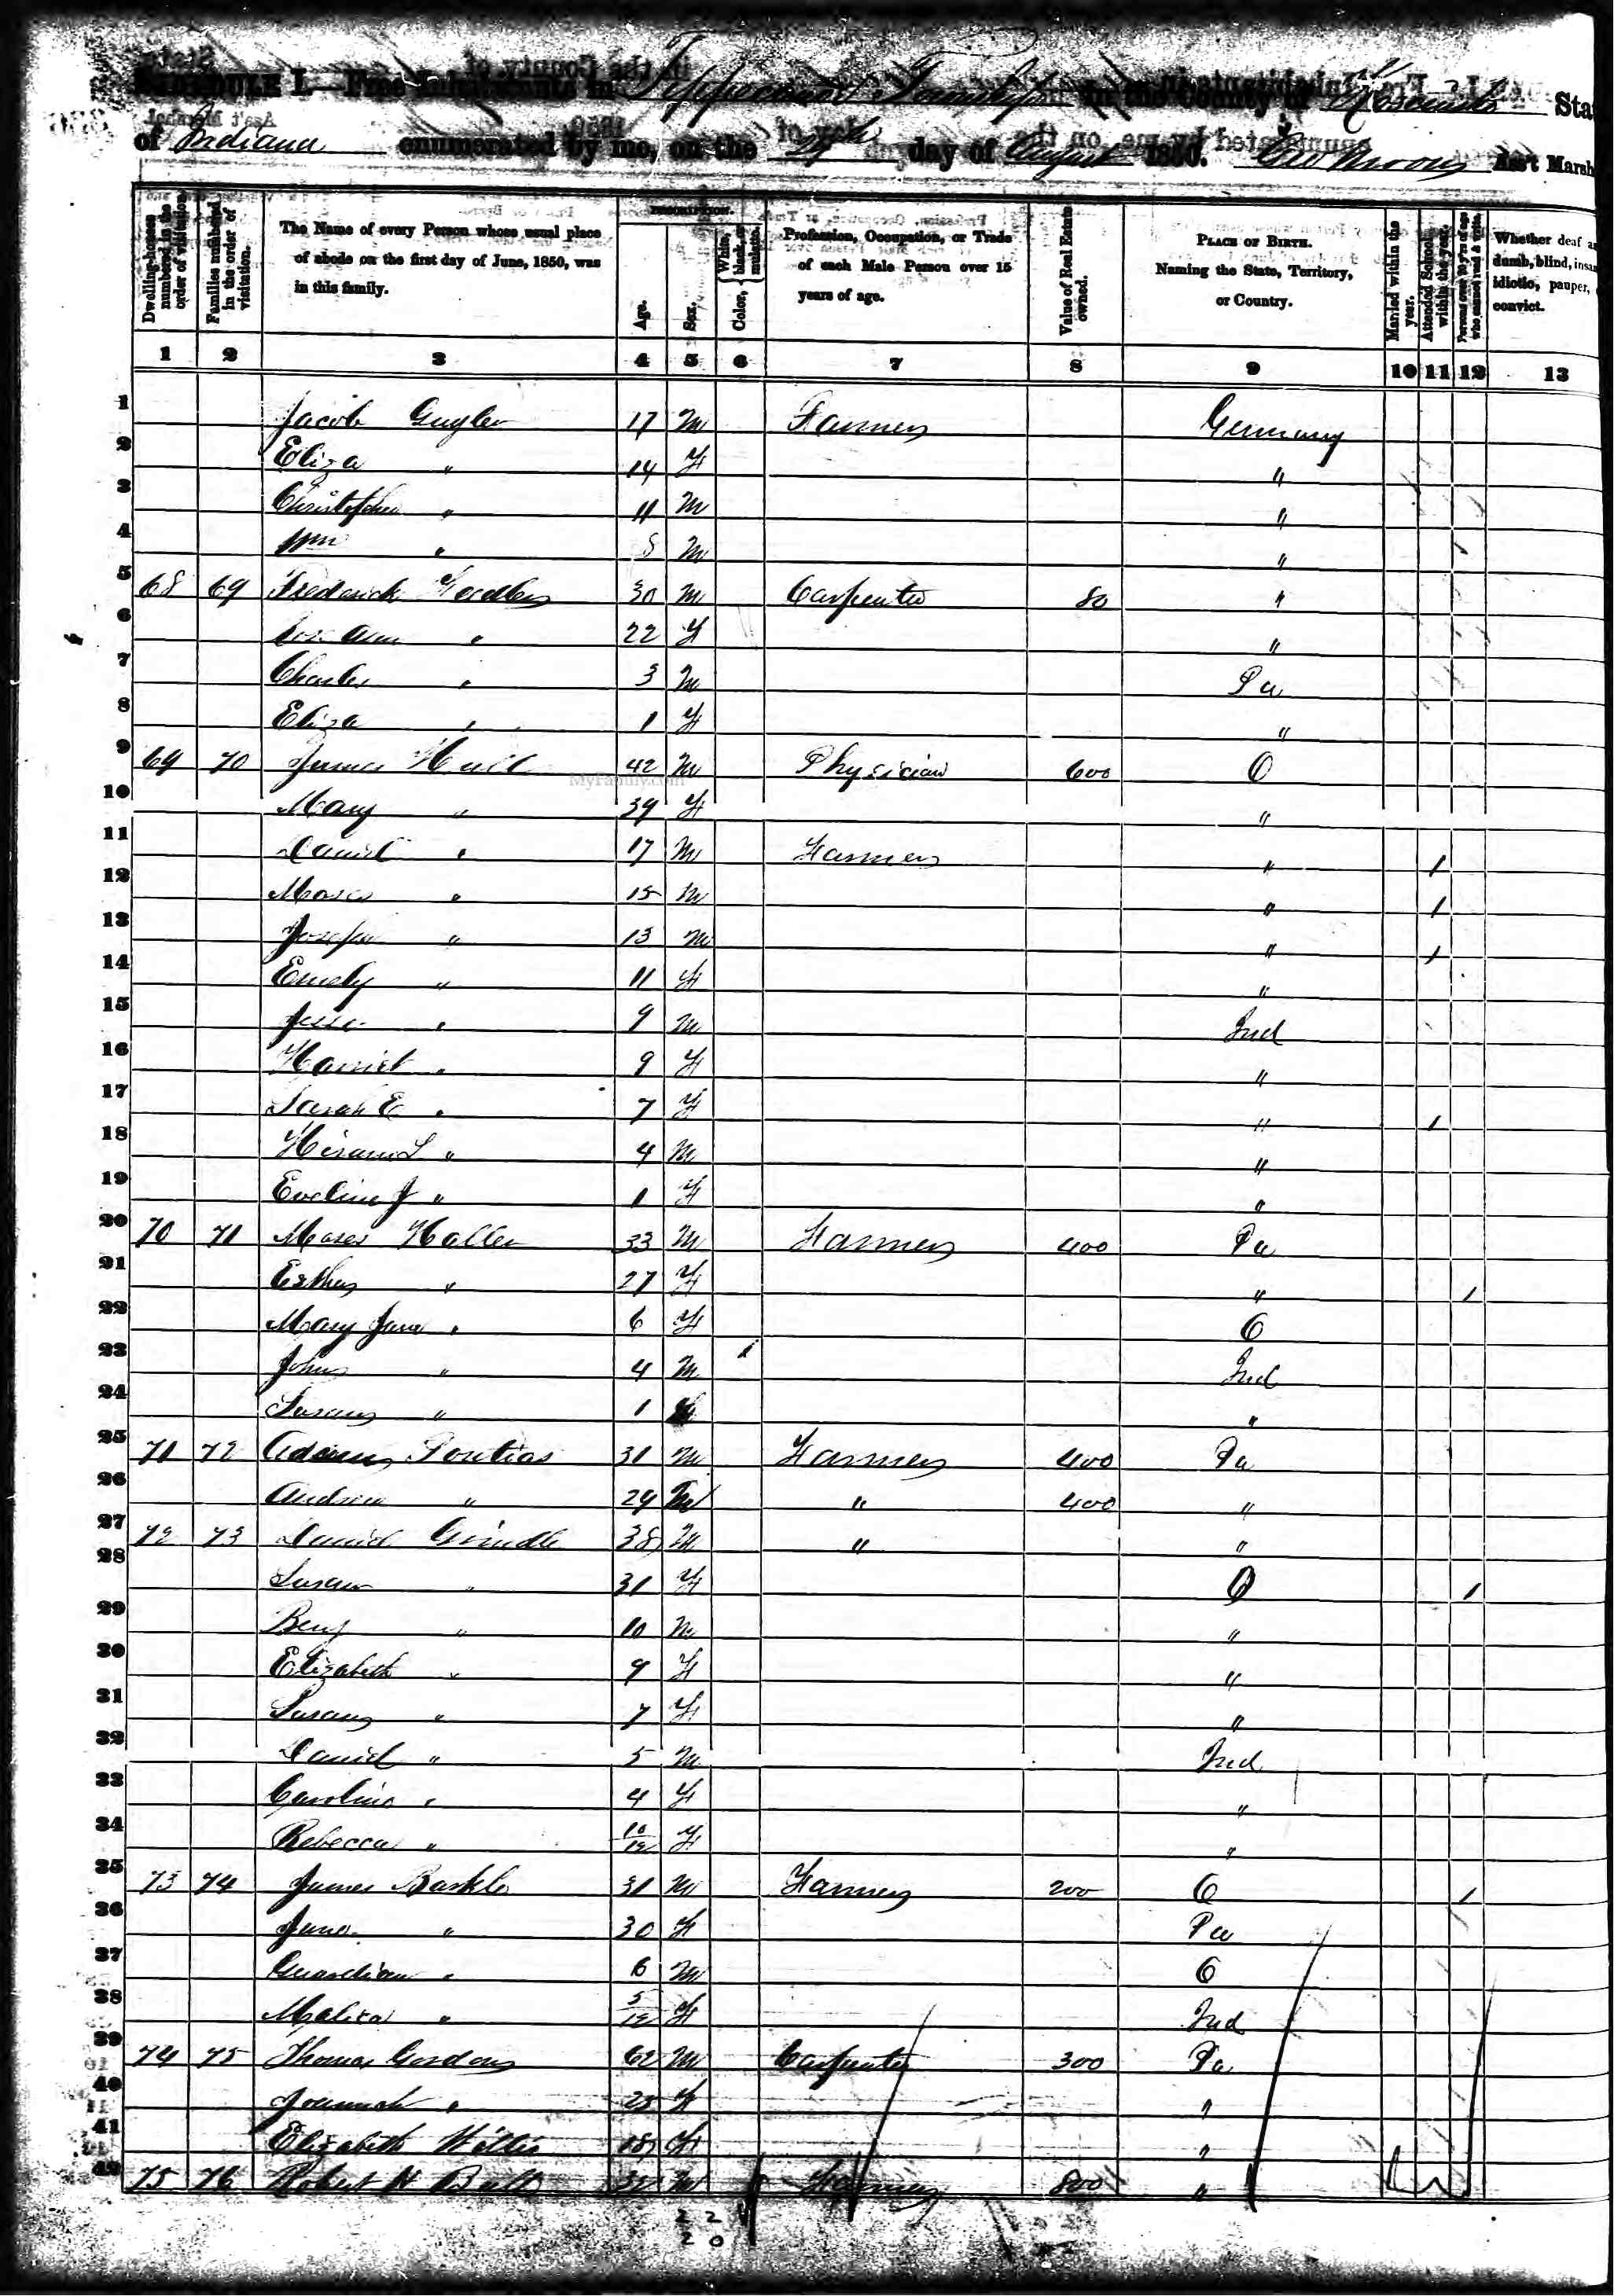 SCHEDULE I.—Free Inhabitants in Tippecanoe Township in the County of Kosciusko State
of Indiana enumerated by me, on the day of August 1850. Geo Moon Ass't Marsh
Dwelling-houses numbered in the order of visitation.
Families numbered in the order of visitation.
The Name of every Person whose usual place of abode on the first day of June, 1850, was in this family.
DESCRIPTION.
Age.
Sex.
Color, { White, black, or mulatto.
Profession, Occupation, or Trade of each Male Person over 15 years of age.
Value of Real Estate owned.
PLACE OF BIRTH. Naming the State, Territory, or Country.
Married within the year.
Attended School within the year.
Persons over 20 y'rs of age who cannot read & write.
Whether deaf and dumb, blind, insane, idiotic, pauper, convict.
1 2 3 4 5 6 7 8 9 10 11 12 13
1 Jacob Gugler 17 M Farmer Germany
2 Eliza " 14 F "
3 Christopher " 11 M "
4 Wm " 8 M "
5 68 69 Frederick 30 M Carpenter 80 "
6 Ann " 22 F "
7 Charles " 3 M Pa
8 Eliza " 1 F "
9 69 70 James Hall 42 M Physician 600 O
10 Mary " 39 F "
11 Daniel " 17 M Farmer " 1
12 Moses " 15 M " 1
13 Joseph " 13 M " 1
14 Emely " 11 F "
15 Jesse " 9 M Ind
16 Harriet " 9 F "
17 Sarah E " 7 F " 1
18 Hiram L " 4 M "
19 Eveline J " 1 F "
20 70 71 Moses Haller 33 M Farmer 400 Pa
21 Esther " 27 F " 1
22 Mary Jane " 6 F O
23 John " 4 M Ind
24 Susan " 1 "
25 71 72 Adam Pontias 31 M Farmer 400 Pa
26 Andrew " 29 M " 400 "
27 72 73 Daniel Grindle 38 M " "
28 Susan " 31 F O 1
29 Benj " 10 M "
30 Elizabeth " 9 F "
31 Susan " 7 F "
32 Daniel " 5 M Ind
33 Caroline " 4 F "
34 Rebecca " 10/12 F "
35 73 74 James Barkle 31 M Farmer 200 O 1
36 Jane " 30 F Pa
37 " 6 M O
38 Malica " 5/12 F Ind
39 74 75 Thomas Gordon 62 M Carpenter 300 Pa
40 Joannah " 25 F "
41 Elizabeth Willis 18 F "
42 75 76 Robert Bull M Farmer 800 "
22
20
MyFamily.com